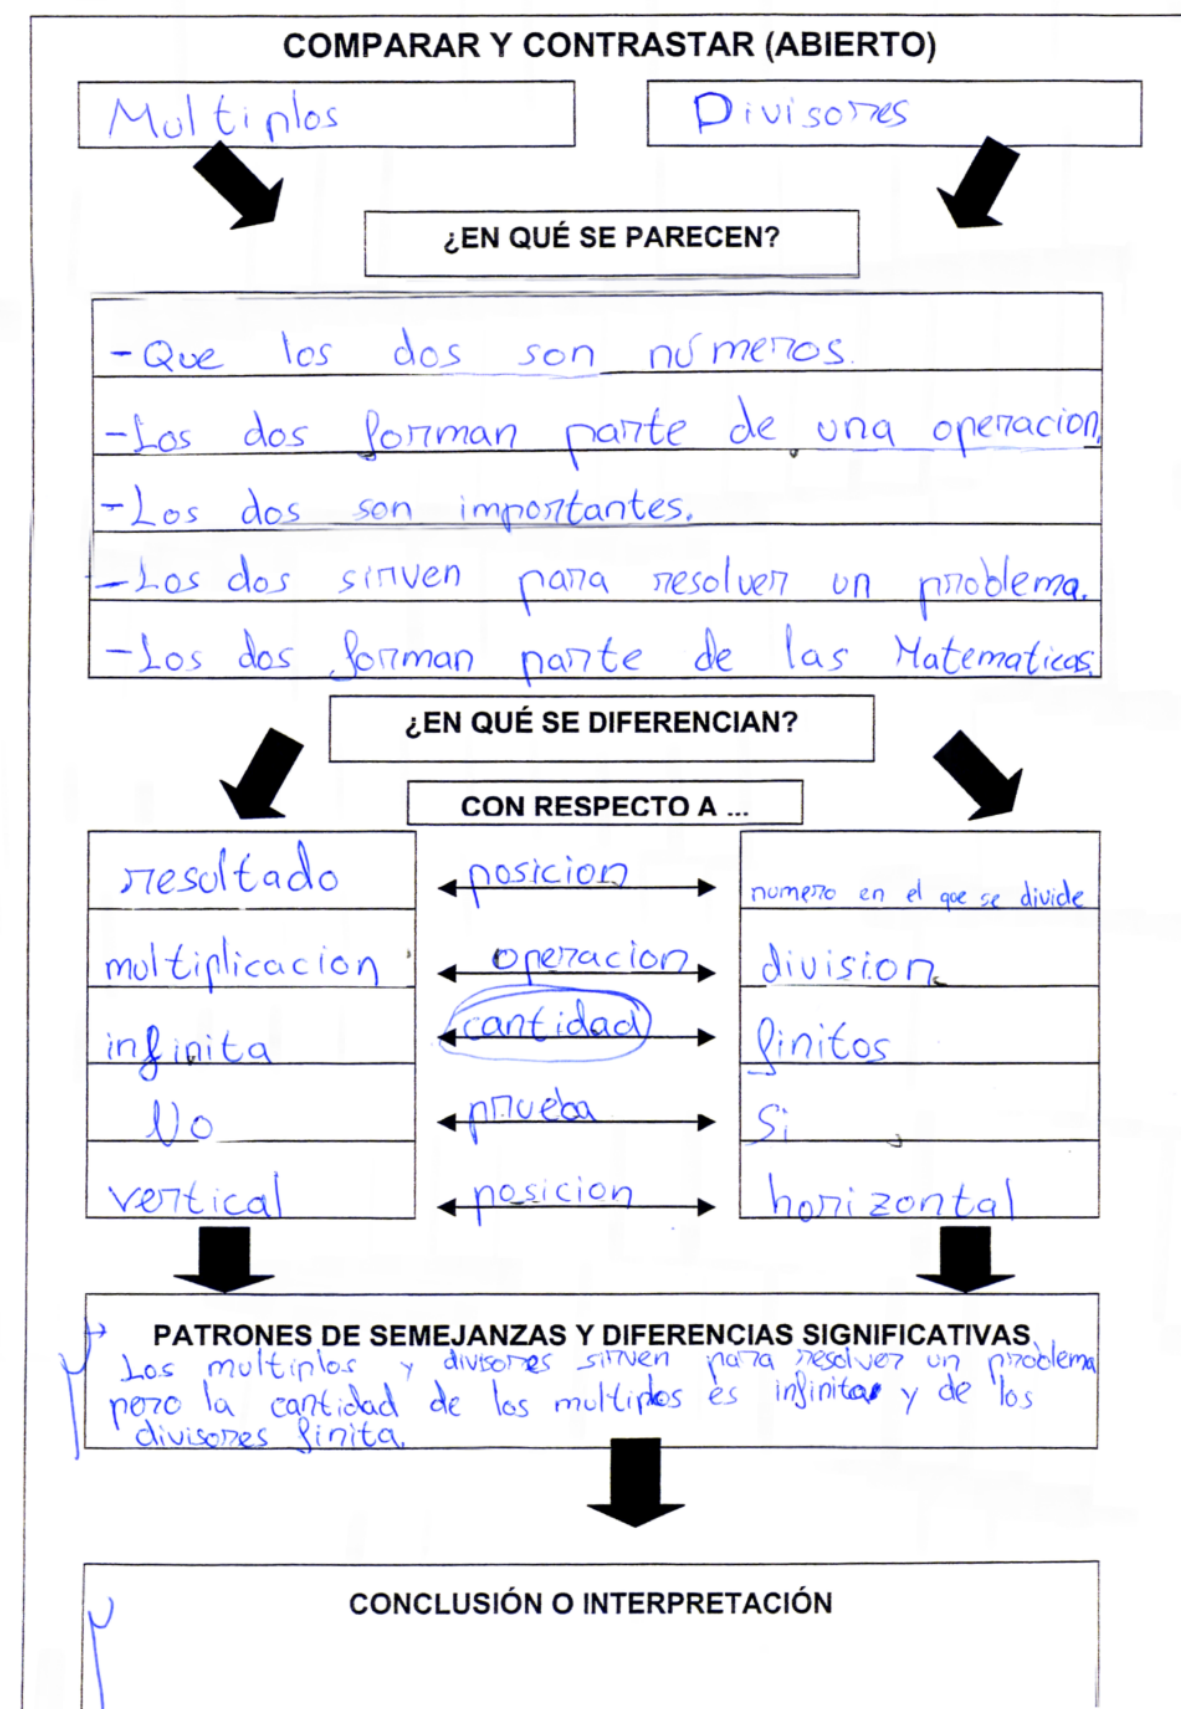 COMPARAR Y CONTRASTAR (ABIERTO)
Multiplos
Divisores
¿EN QUÉ SE PARECEN?
- Que los dos son números.
- Los dos forman parte de una operacion.
- Los dos son importantes.
- Los dos sirven para resolver un problema.
- Los dos forman parte de las Matematicas.
¿EN QUÉ SE DIFERENCIAN?
CON RESPECTO A ...
resultado posicion numero en el que se divide
multiplicacion operacion division
infinita cantidad finitos
No prueba Si
vertical posicion horizontal
PATRONES DE SEMEJANZAS Y DIFERENCIAS SIGNIFICATIVAS
Los multiplos y divisores sirven para resolver un problema
pero la cantidad de los multiplos es infinita y de los
divisores finita.
CONCLUSIÓN O INTERPRETACIÓN